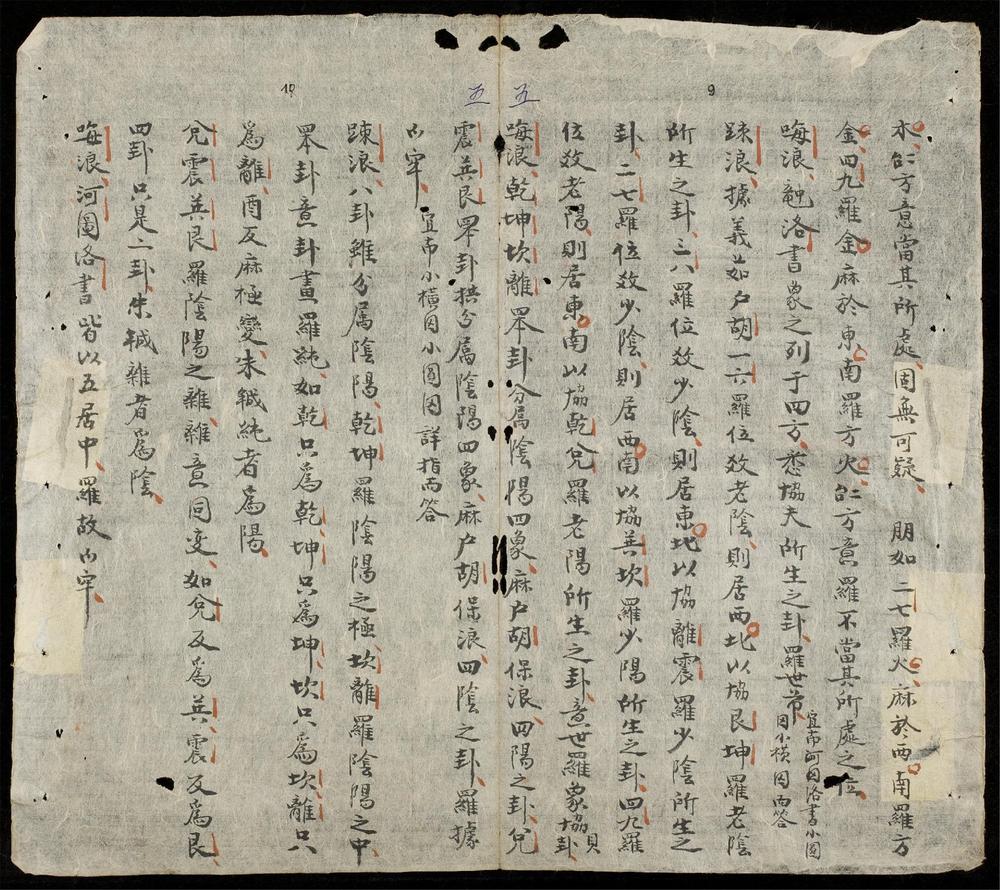 9
五
水方意當其所處固無可疑 朋如二七羅火麻於西南羅方
金四九羅金麻於東南羅方火方意羅不當其所處之位
㖼浪洛書象之列于四方悉協夫所生之卦羅世帝 宜甫河圖洛書小圓圖小橫圖而答
踈浪據義如户胡一六羅位效老陰則居西北以協艮坤羅老陰
所生之卦三八羅位效少陰則居東北以協離震羅少陰所生之
卦二七羅位效少陰則居西南以協巽坎羅少陽所生之卦四九羅
位效老陽則居東南以協乾兌羅老陽所生之卦意世羅象協貝卦
㖼浪乾坤坎離罘卦分屬陰陽四象麻户胡保浪四陽之卦兌
五
10
震巽艮罘卦拱分屬陰陽四象麻户胡保浪四陰之卦羅據
牢 宜甫小橫圖小圓圖詳指而答
踈浪八卦雖分属陰陽乾坤羅陰陽之極坎離羅陰陽之中
罘卦意卦畫羅純如乾只為乾坤只為坤坎只為坎離只
爲離酉反麻極變朱純者爲陽
兌震巽艮羅陰陽之雜雜意同变如兌反爲巽震反爲艮
四卦只是二卦朱雜者爲陰
㖼浪河圖洛書皆以五居中羅故牢